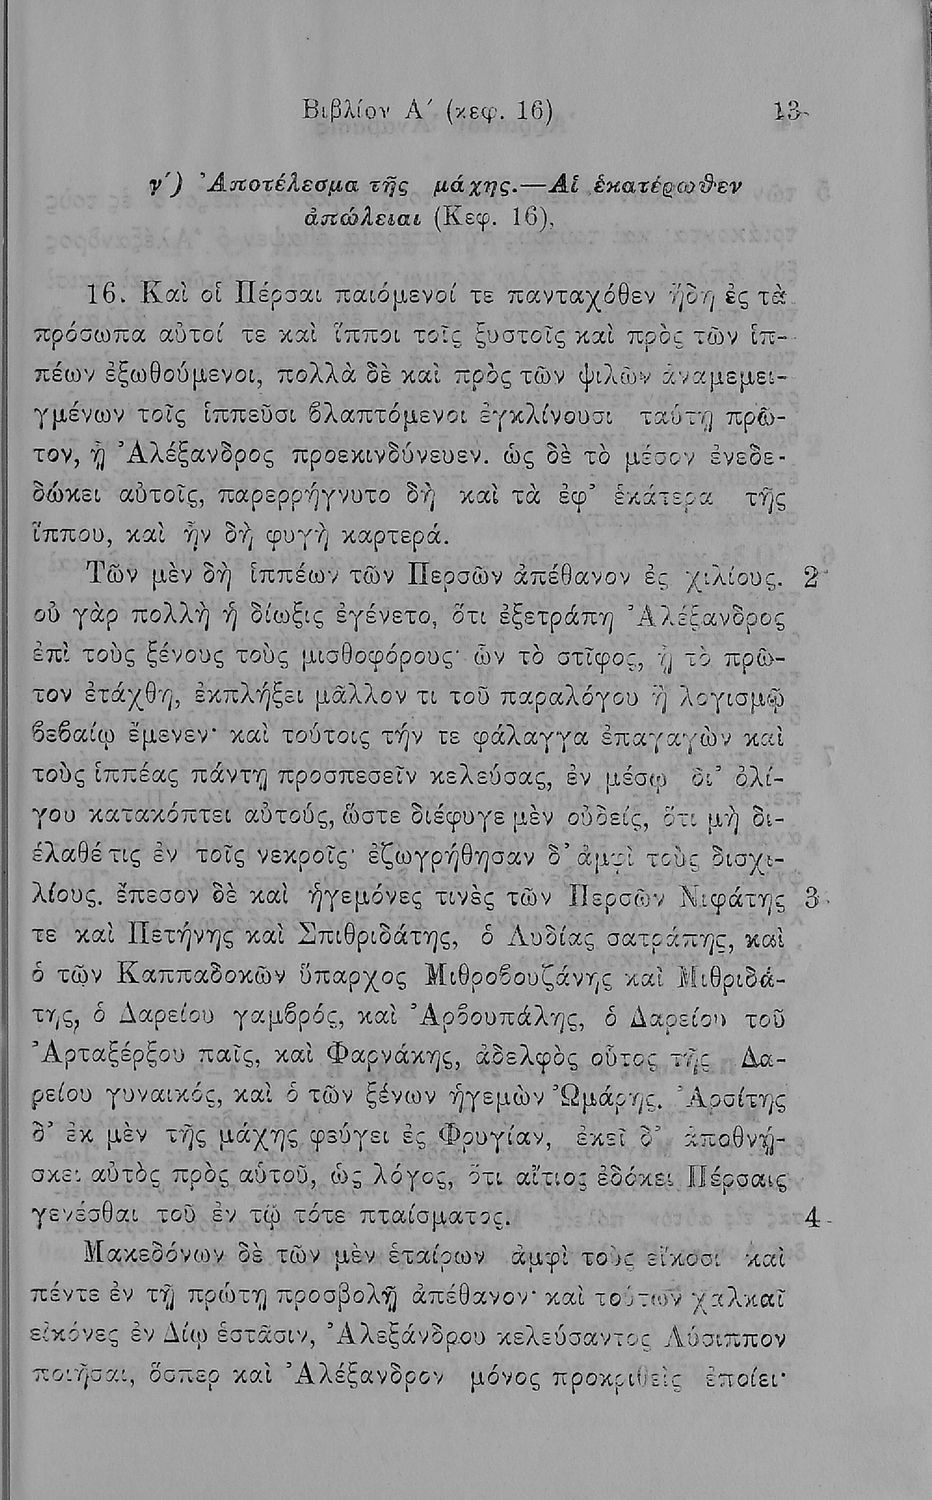 Βιβλίον Α΄ (κεφ. 16) 13
γ΄) Ἀποτέλεσμα τῆς μάχης.—Αἱ ἑκατέρωθεν
ἀπώλειαι (Κεφ. 16).
16. Καὶ οἱ Πέρσαι παιόμενοί τε πανταχόθεν ἤδη ἐς τὰ
πρόσωπα αὐτοί τε καὶ ἵπποι τοῖς ξυστοῖς καὶ πρὸς τῶν ἱπ-
πέων ἐξωθούμενοι, πολλὰ δὲ καὶ πρὸς τῶν ψιλῶν ἀναμεμει-
γμένων τοῖς ἱππεῦσι βλαπτόμενοι ἐγκλίνουσι ταύτῃ πρῶ-
τον, ᾗ Ἀλέξανδρος προεκινδύνευεν. ὡς δὲ τὸ μέσον ἐνεδε-
δώκει αὐτοῖς, παρερρήγνυτο δὴ καὶ τὰ ἐφ’ ἑκάτερα τῆς
ἵππου, καὶ ἦν δὴ φυγὴ καρτερά.
Τῶν μὲν δὴ ἱππέων τῶν Περσῶν ἀπέθανον ἐς χιλίους. 2
οὐ γὰρ πολλὴ ἡ δίωξις ἐγένετο, ὅτι ἐξετράπη Ἀλέξανδρος
ἐπὶ τοὺς ξένους τοὺς μισθοφόρους· ὧν τὸ στῖφος, ᾗ τὸ πρῶ-
τον ἐτάχθη, ἐκπλήξει μᾶλλον τι τοῦ παραλόγου ἢ λογισμῷ
βεβαίῳ ἔμενεν· καὶ τούτοις τήν τε φάλαγγα ἐπαγαγὼν καὶ
τοὺς ἱππέας πάντῃ προσπεσεῖν κελεύσας, ἐν μέσῳ δι’ ὀλί-
γου κατακόπτει αὐτούς, ὥστε διέφυγε μὲν οὐδείς, ὅτι μὴ δι-
έλαθέ τις ἐν τοῖς νεκροῖς· ἐζωγρήθησαν δ’ ἀμφὶ τοὺς δισχι-
λίους. ἔπεσον δὲ καὶ ἡγεμόνες τινὲς τῶν Περσῶν Νιφάτης 3
τε καὶ Πετήνης καὶ Σπιθριδάτης, ὁ Λυδίας σατράπης, καὶ
ὁ τῶν Καππαδοκῶν ὕπαρχος Μιθροβουζάνης καὶ Μιθριδά-
της, ὁ Δαρείου γαμβρός, καὶ Ἀρβουπάλης, ὁ Δαρείου τοῦ
Ἀρταξέρξου παῖς, καὶ Φαρνάκης, ἀδελφὸς οὗτος τῆς Δα-
ρείου γυναικός, καὶ ὁ τῶν ξένων ἡγεμὼν Ὠμάρης. Ἀρσίτης
δ’ ἐκ μὲν τῆς μάχης φεύγει ἐς Φρυγίαν, ἐκεῖ δ’ ἀποθνῄ-
σκει αὐτὸς πρὸς αὑτοῦ, ὡς λόγος, ὅτι αἴτιος ἐδόκει Πέρσαις
γενέσθαι τοῦ ἐν τῷ τότε πταίσματος. 4
Μακεδόνων δὲ τῶν μὲν ἑταίρων ἀμφὶ τοὺς εἴκοσι καὶ
πέντε ἐν τῇ πρώτῃ προσβολῇ ἀπέθανον· καὶ τούτων χαλκαῖ
εἰκόνες ἐν Δίῳ ἑστᾶσιν, Ἀλεξάνδρου κελεύσαντος Λύσιππον
ποιῆσαι, ὅσπερ καὶ Ἀλέξανδρον μόνος προκριθεὶς ἐποίει·